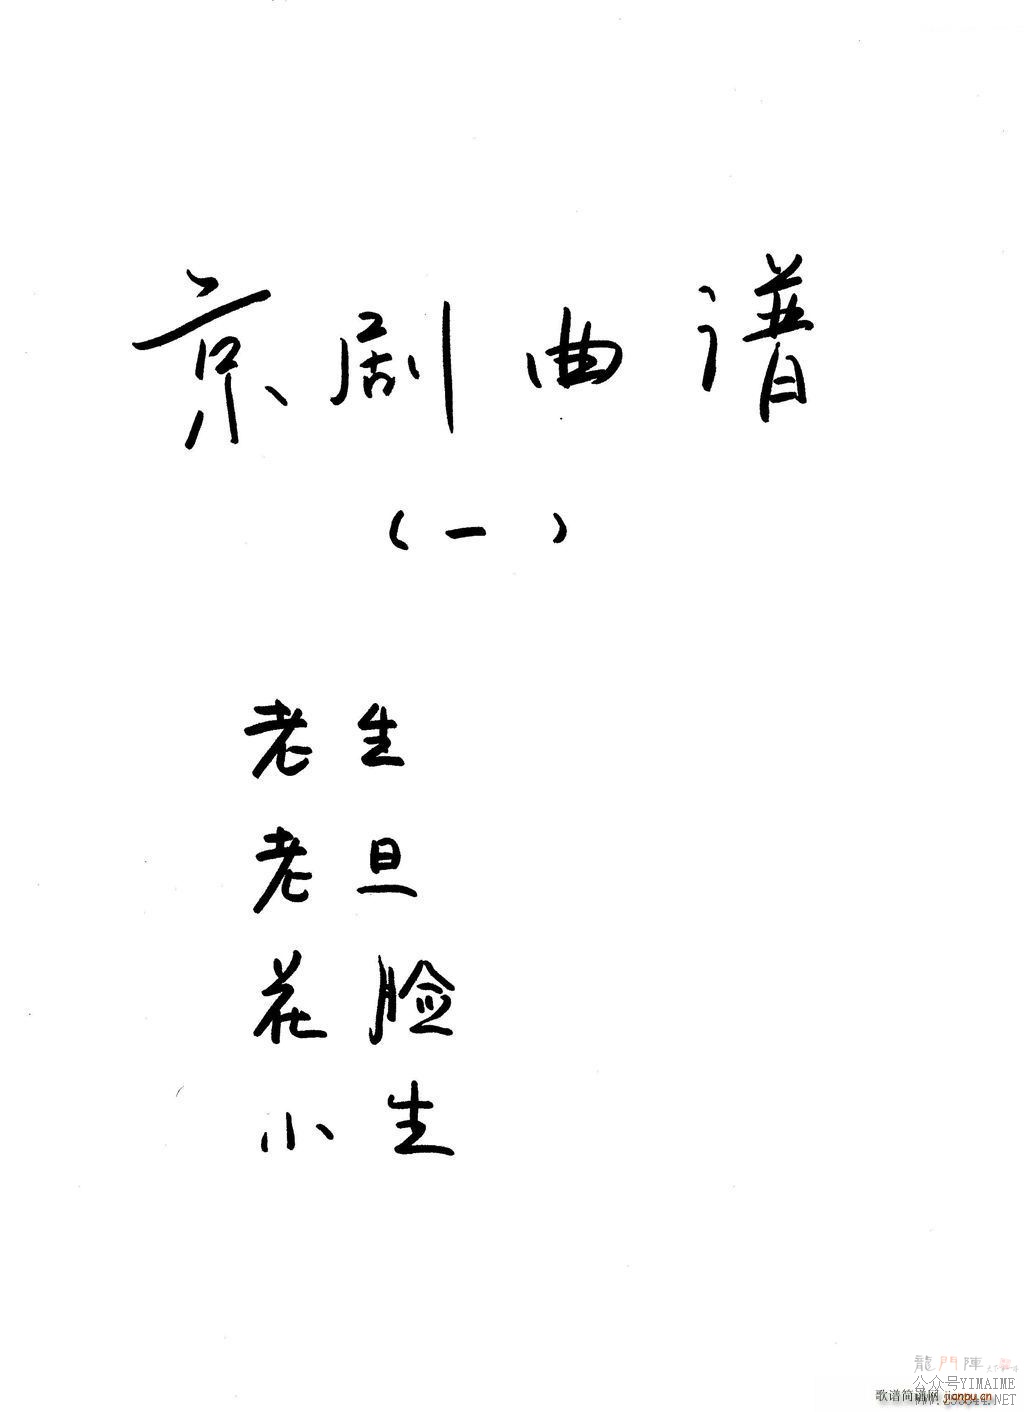 京剧曲谱
（一）
老生
老旦
花脸
小生
龍門陣
公众号YIMAIME
歌谱简谱网 jianpu.cn